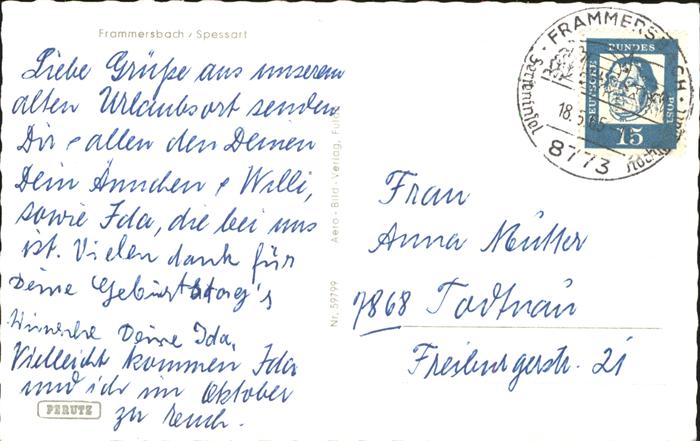 Frammersbach / Spessart
Liebe Grüße aus unserem
alten Urlaubsort senden
Dir & allen den Deinen
Dein Ännchen & Willi,
sowie Ida, die bei uns
ist. Vielen dank für
Deine Geburtstag's
Wünsche Deine Ida,
Vielleicht kommen Ida
und ich im Oktober
zu euch.
PERUTZ
Aero-Bild-Verlag, Fulda
Nr. 59799
FRAMMERSBACH
18.5.65
8773
DEUTSCHE BUNDESPOST
15
Frau
Anna Müller
7868 Todtnau
Freiburgerstr. 21